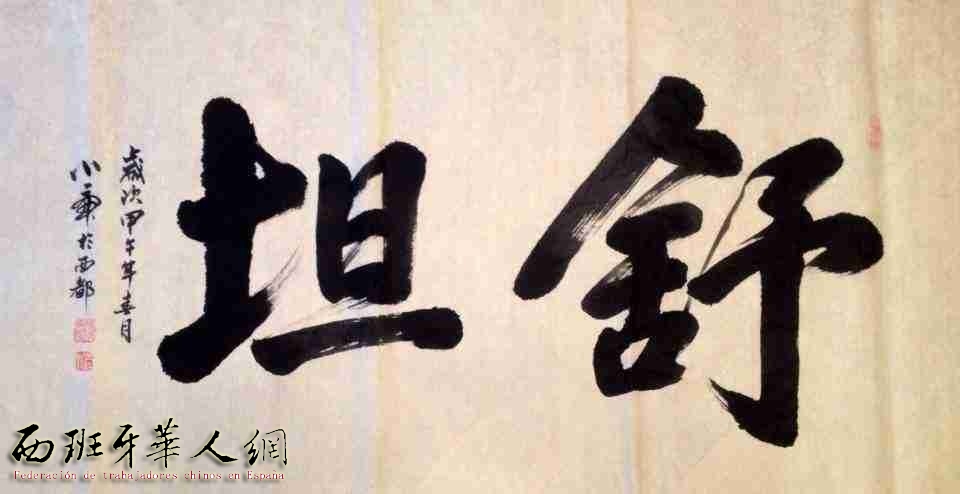 舒坦
歲次甲午年喜月
小 於西都
西班牙華人網
Federación de trabajadores chinos en España